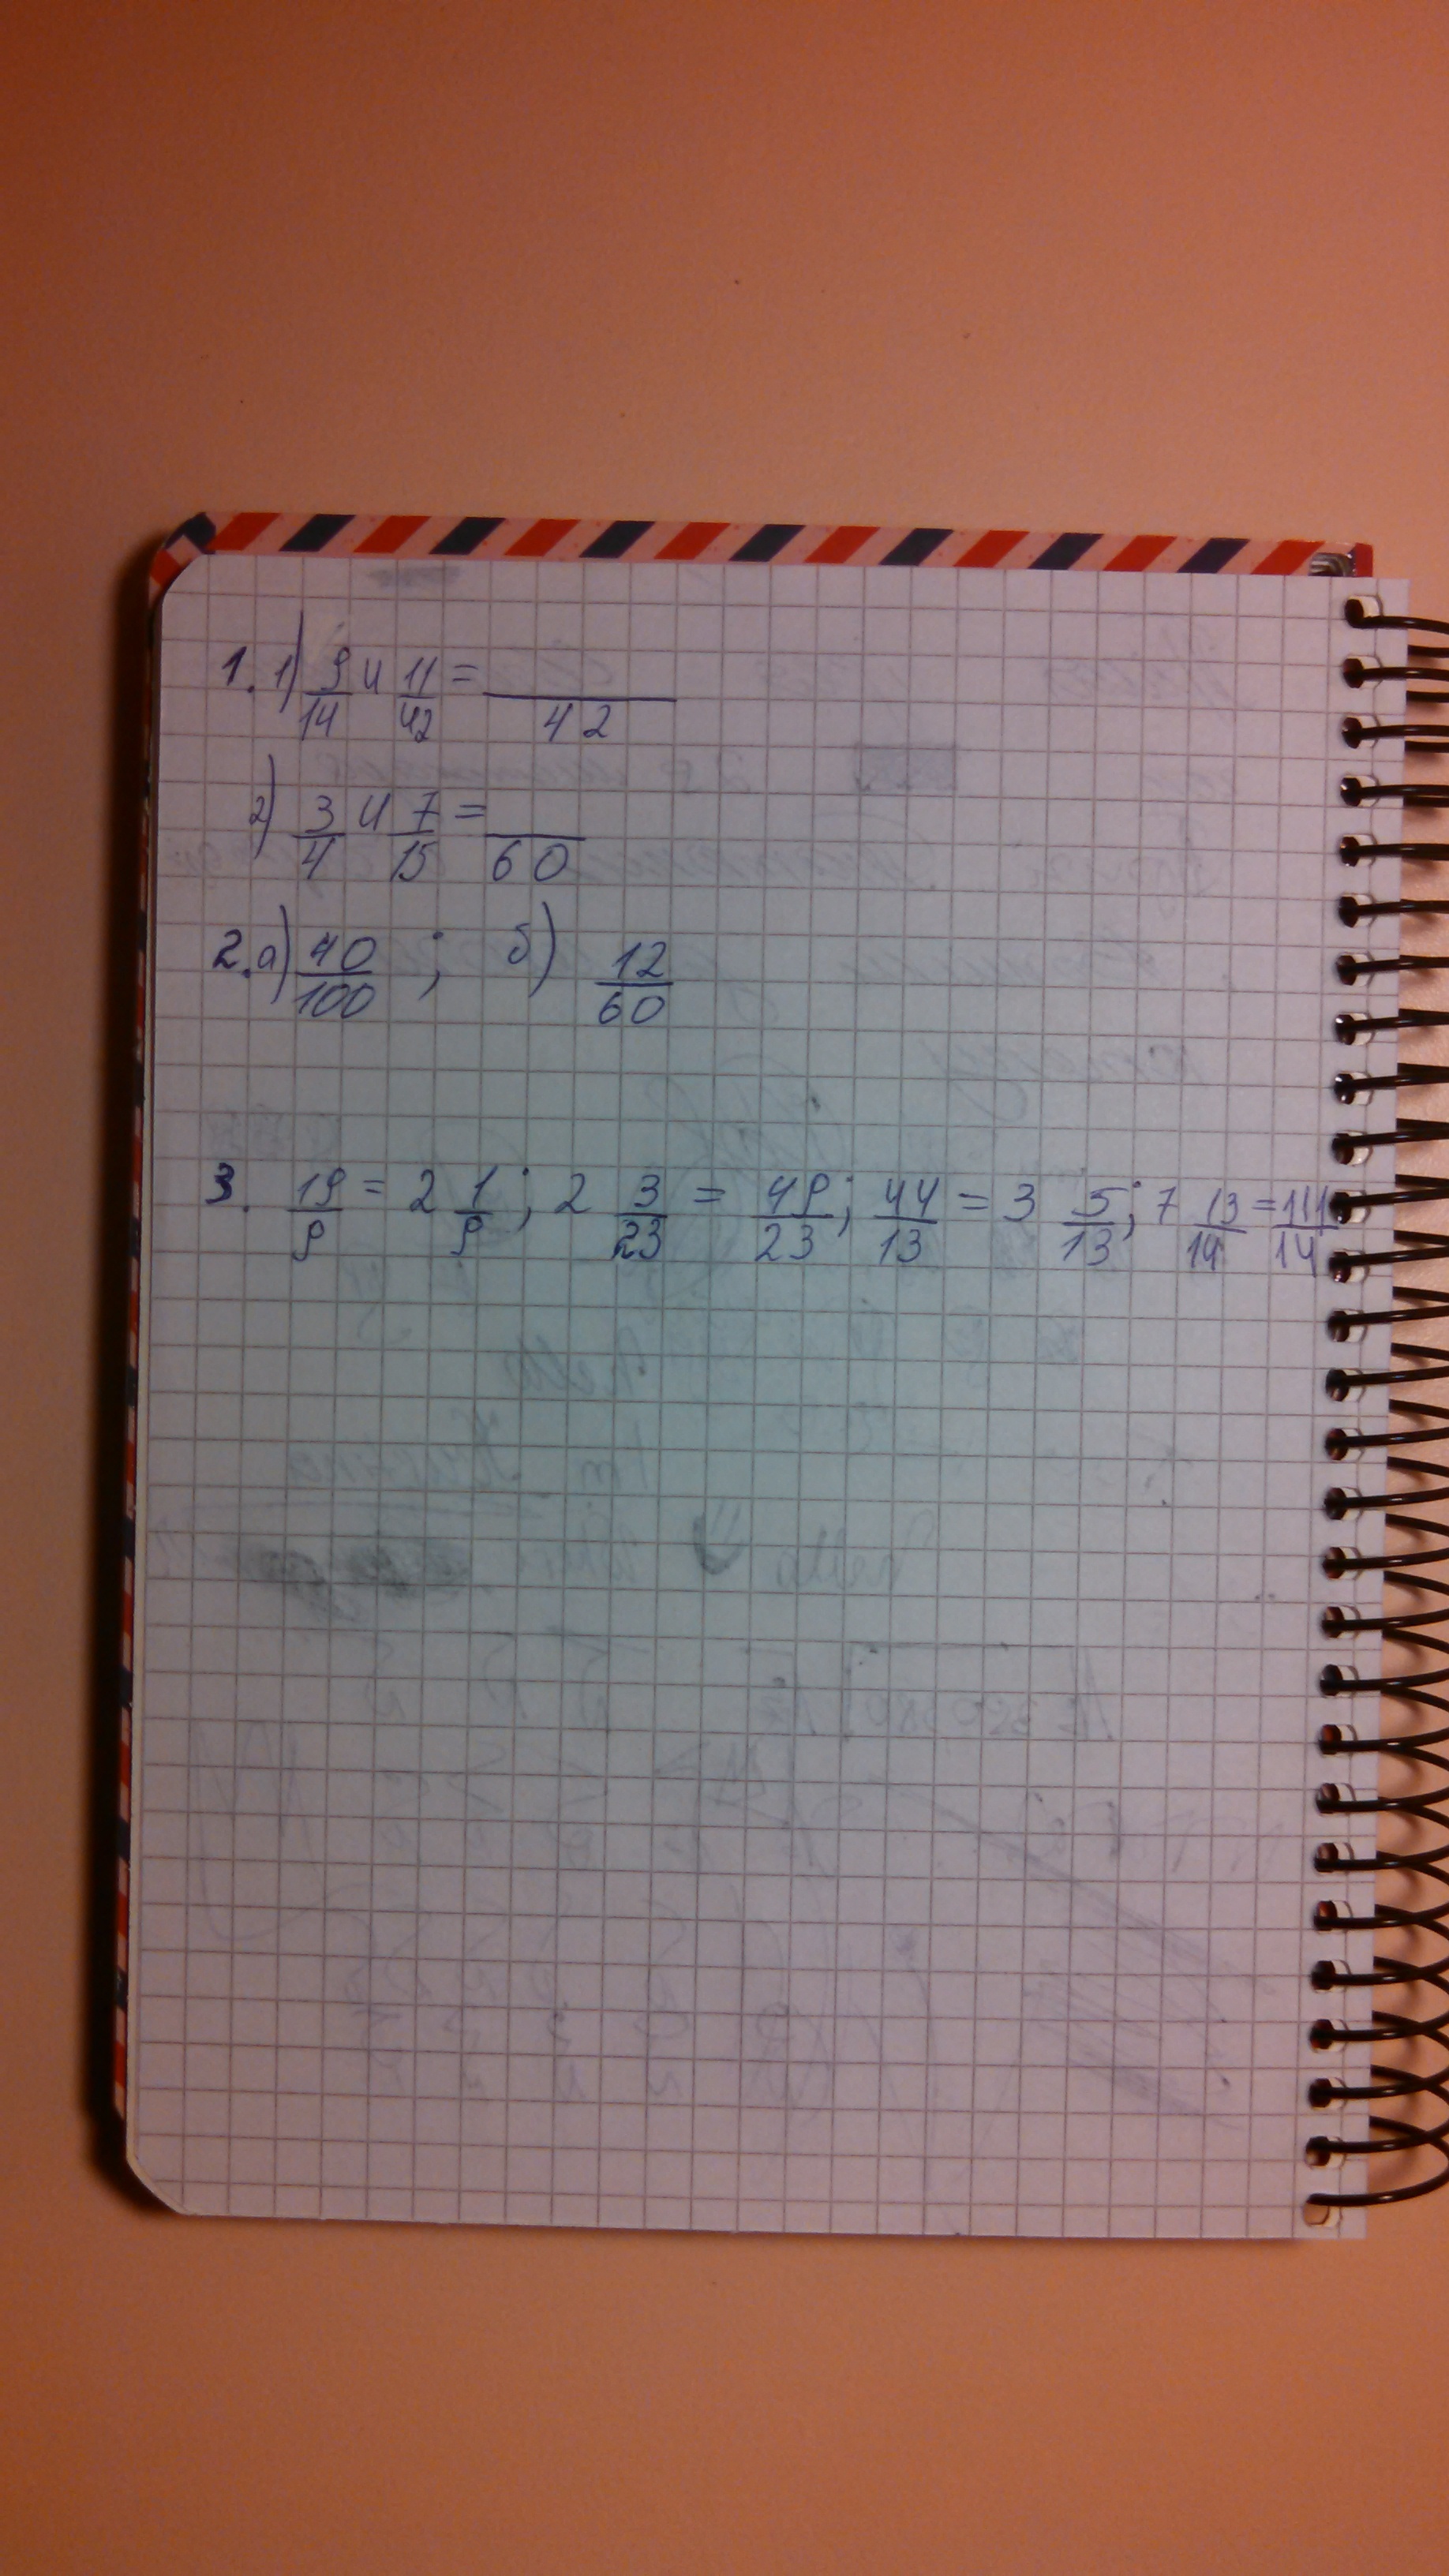 1. 1) 9/14 и 11/42 = __/42
2) 3/4 и 7/15 = __/60
2. а) 40/100 ; б) 12/60
3. 19/9 = 2 1/9 ; 2 3/23 = 49/23 ; 44/13 = 3 5/13 ; 7 13/14 = 111/14